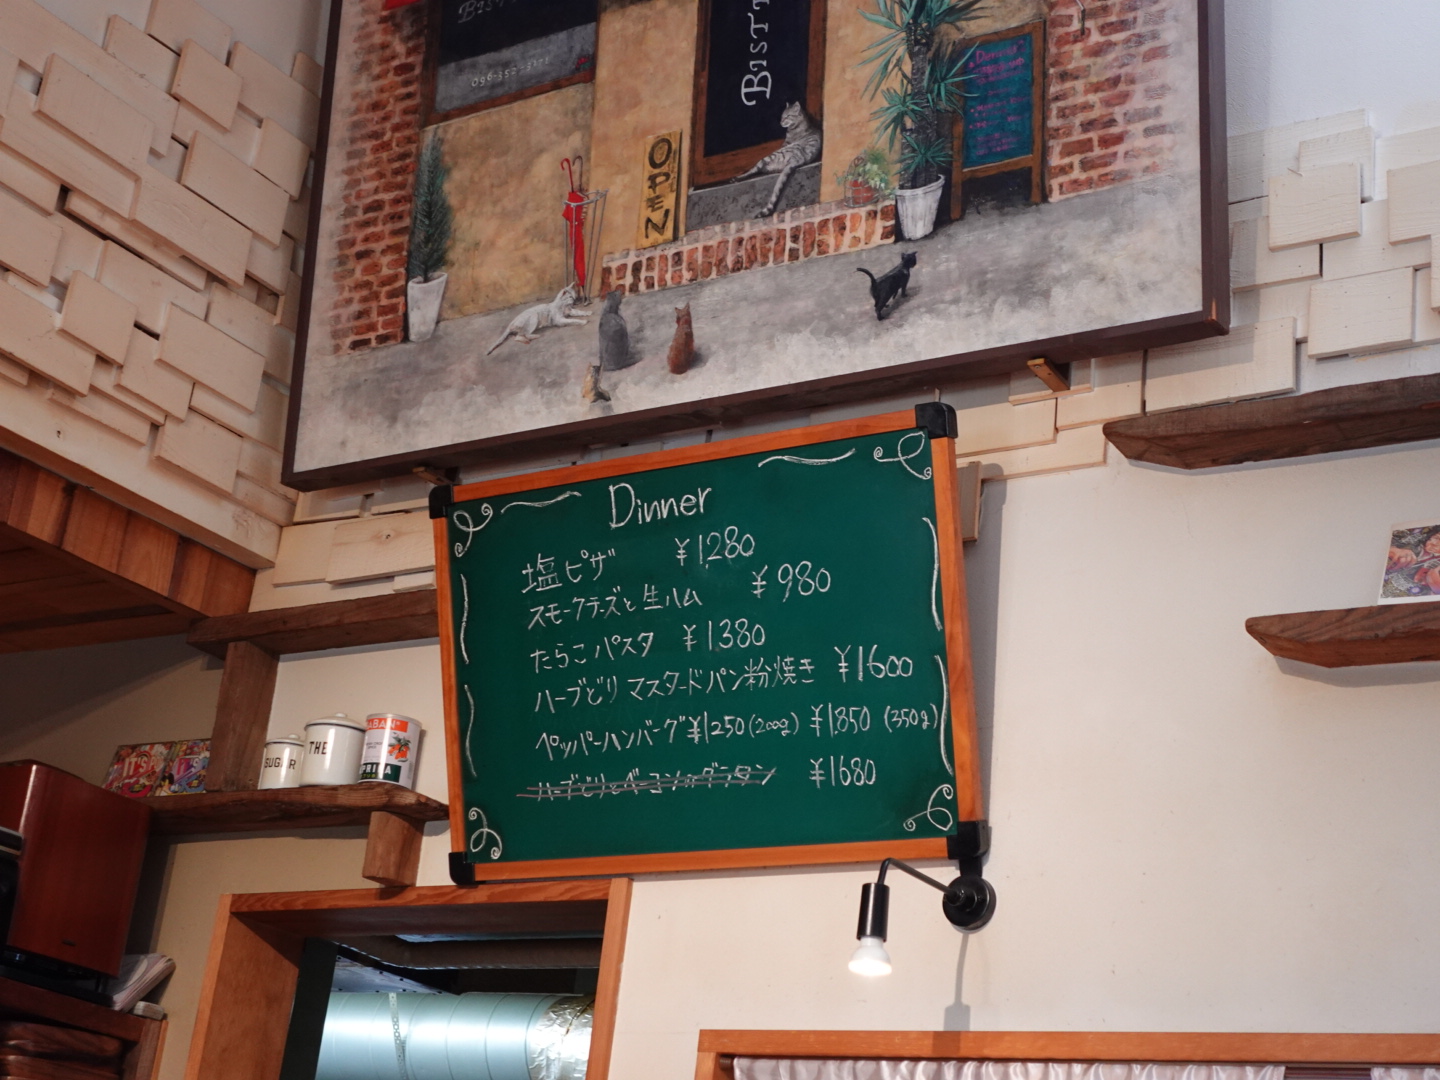 BIST
096-352-
BIST
OPEN
Dinner
塩ピザ ¥1,280
スモークチーズと生ハム ¥980
たらこパスタ ¥1380
ハーブどり マスタードパン粉焼き ¥1600
ペッパーハンバーグ ¥1250(200g) ¥1,850 (350g)
ハーブどりとベーコンのグラタン ¥1680
SUGAR
THE
IT'S